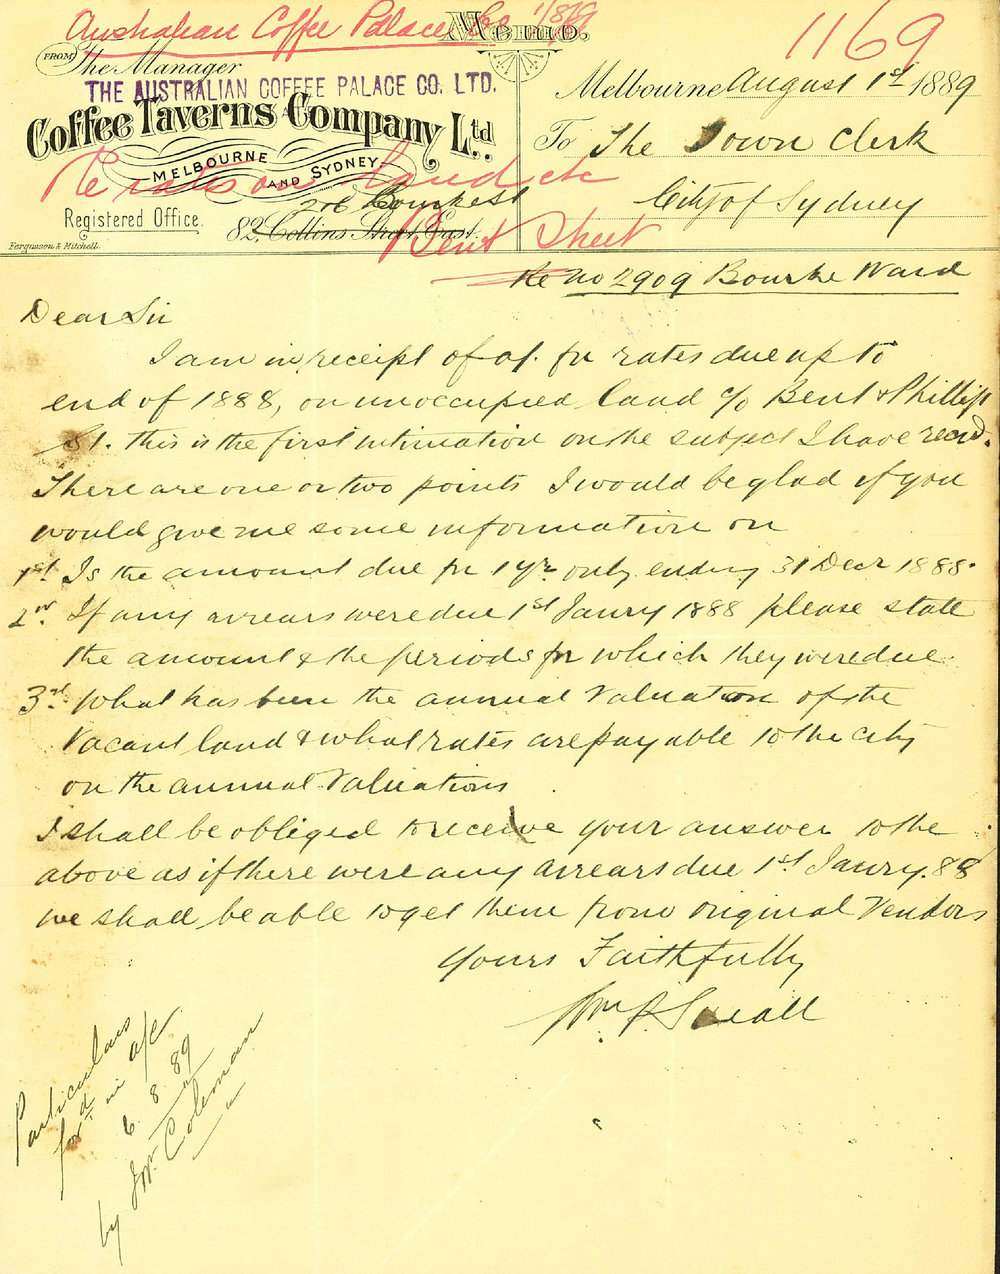 Australian Coffee Palace Co 1/8/89
Memo.
1169
FROM The Manager
THE AUSTRALIAN COFFEE PALACE CO. LTD.
Coffee Taverns Company Ltd.
MELBOURNE AND SYDNEY.
Re rates on land etc
Bent Street
Registered Office.
206 Bourke St
82, Collins Street East.
Fergusson & Mitchell.
Melbourne August 1st 1889
To The Town Clerk
City of Sydney
Re no 2909 Bourke Ward
Dear Sir
I am in receipt of a/. for rates due up to
end of 1888, on unoccupied land c/o Bent & Phillip
St. this is the first intimation on the subject I have recd.
There are one or two points I would be glad if you
would give me some information on
1st. Is the amount due for 1 yr. only ending 31 Decr 1888.
2nd. If any arrears were due 1st Janry 1888 please state
the amount & the periods for which they were due
3rd. What has been the annual Valuation of the
Vacant land & what rates are payable to the city
on the annual Valuations
I shall be obliged to receive your answer to the
above as if there were any arrears due 1st Janry. 88
we shall be able to get them from original Vendors
Yours Faithfully
Wm P Small
Particulars
ford. in a/c
6. 8. 89
by Mr. Coleman